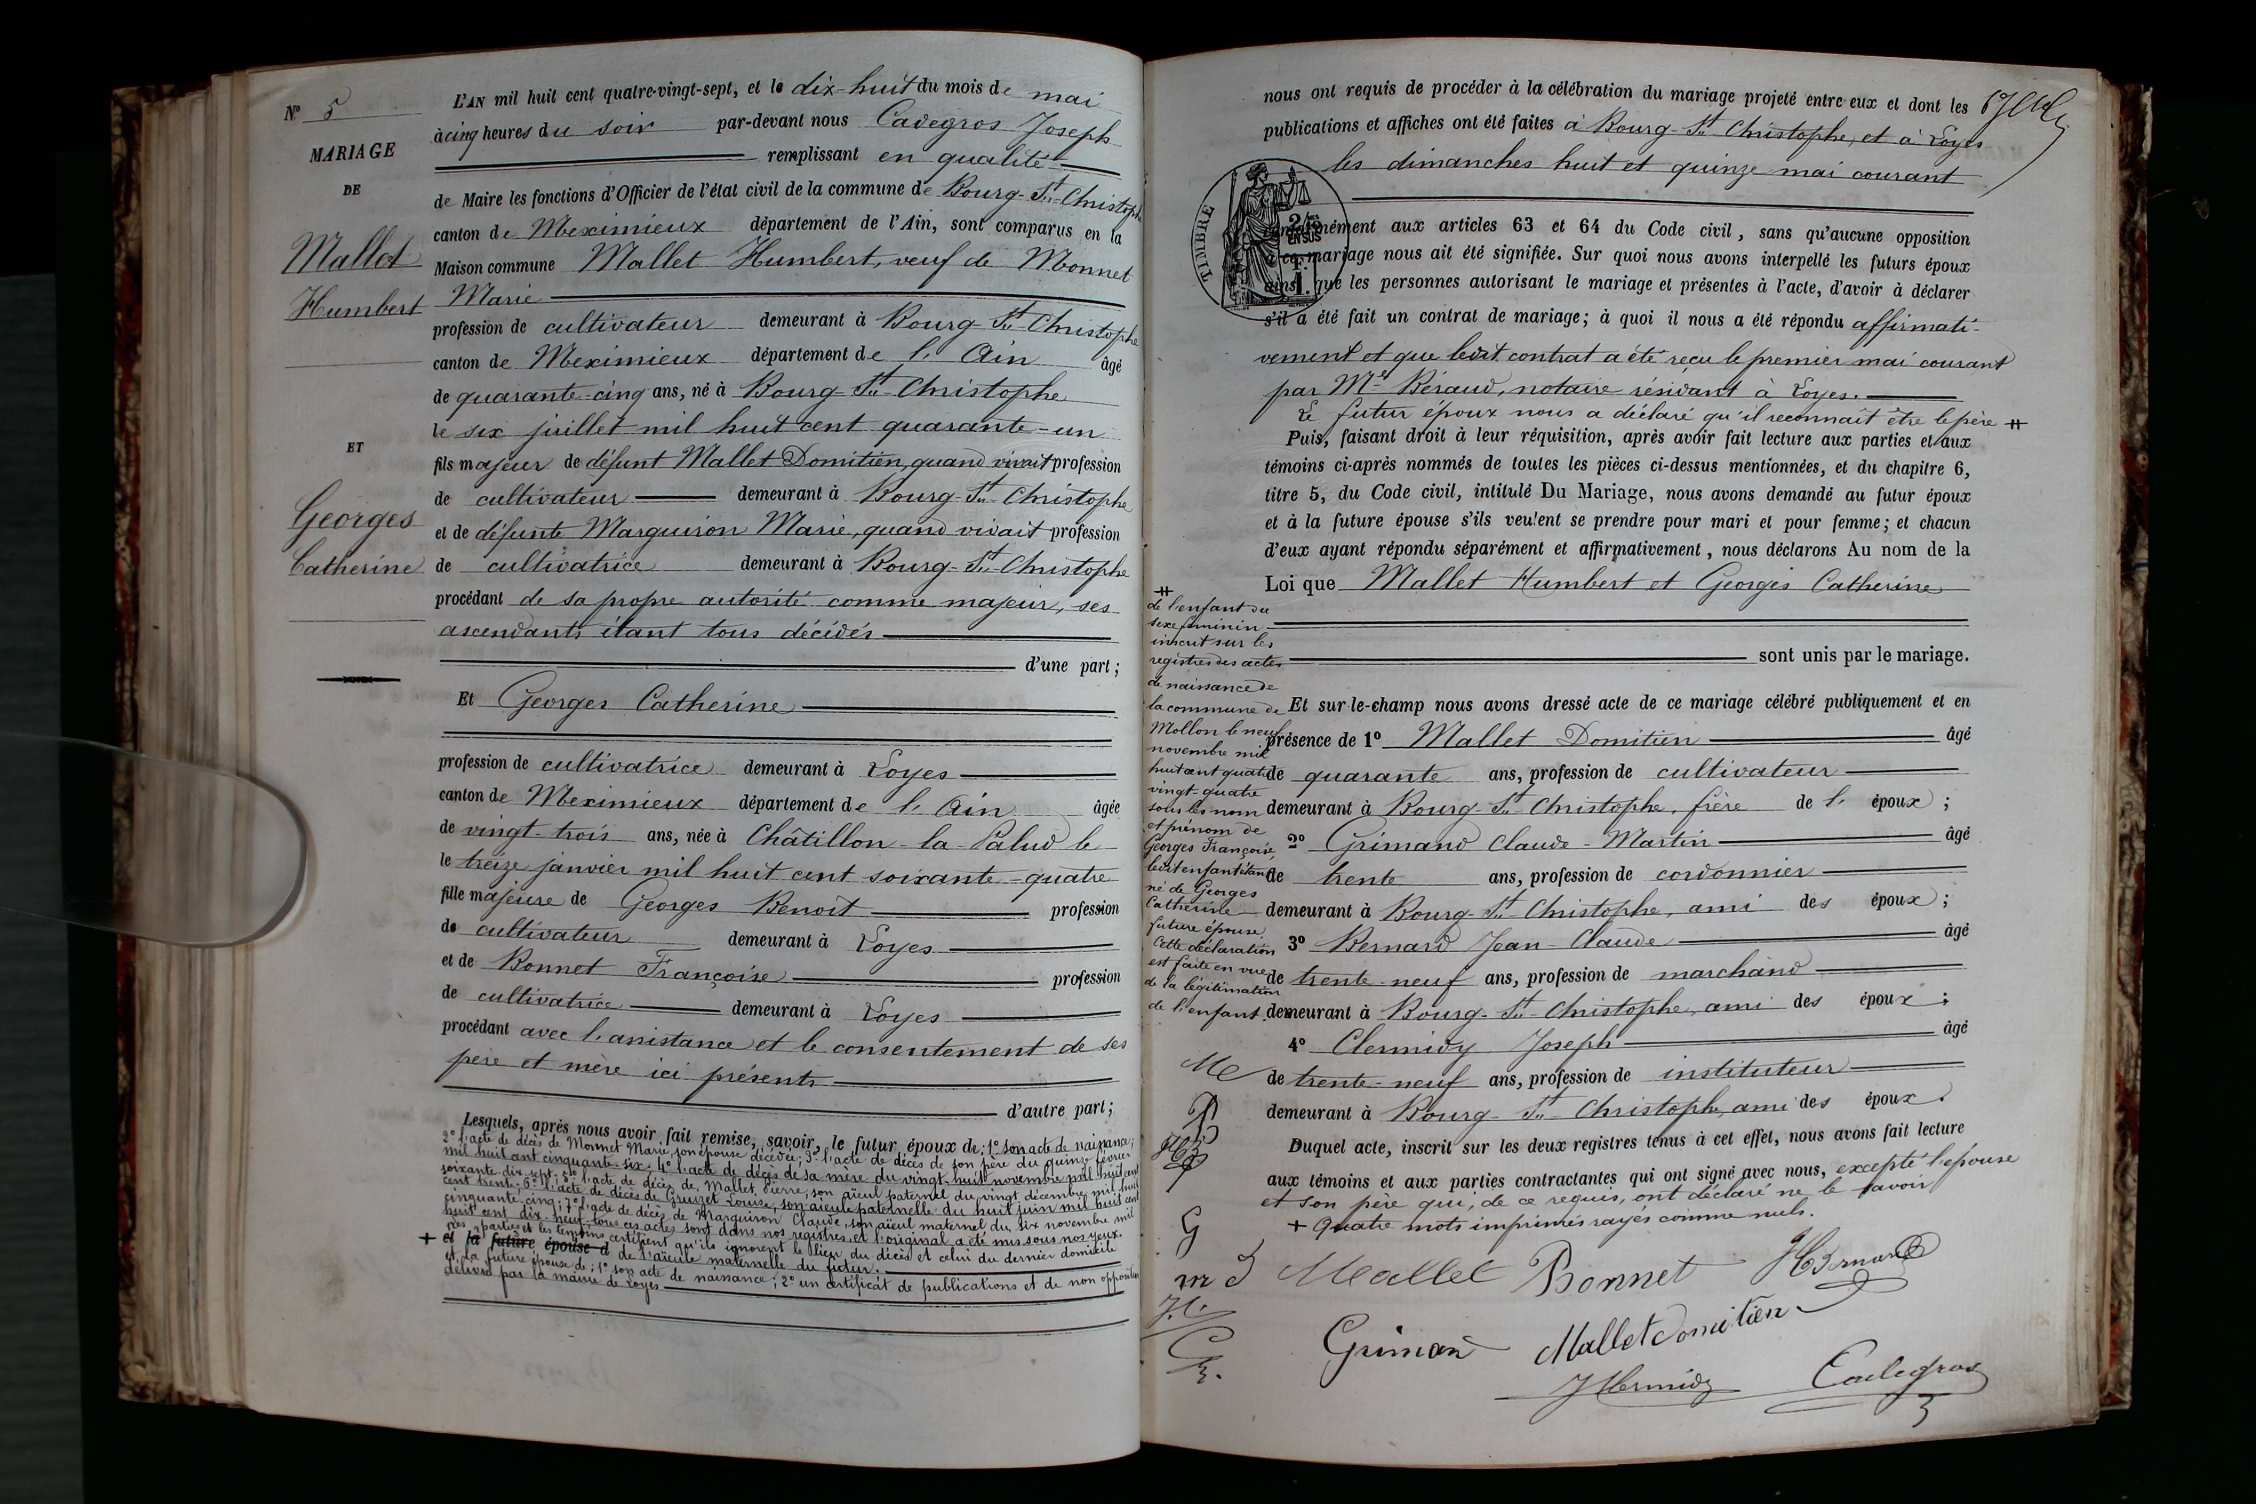 N° 5
MARIAGE
DE
Mallet
Humbert
ET
Georges
Catherine
L'AN mil huit cent quatre-vingt-sept, et le dix-huit du mois de mai
à cinq heures du soir par-devant nous Cadegros Joseph
remplissant en qualité
de Maire les fonctions d'Officier de l'état civil de la commune de Bourg-St-Christophe
canton de Meximieux département de l'Ain, sont comparus en la
Maison commune Mallet Humbert, veuf de Monnet
Marie
profession de cultivateur demeurant à Bourg-St-Christophe
canton de Meximieux département de l'Ain âgé
de quarante-cinq ans, né à Bourg-St-Christophe
le six juillet mil huit cent quarante-un
fils majeur de défunt Mallet Domitien, quand vivait profession
de cultivateur demeurant à Bourg-St-Christophe
et de défunte Marguiron Marie, quand vivait profession
de cultivatrice demeurant à Bourg-St-Christophe
procédant de sa propre autorité comme majeur, ses
ascendants étant tous décédés
d'une part;
Et Georges Catherine
profession de cultivatrice demeurant à Loyes
canton de Meximieux département de l'Ain âgée
de vingt-trois ans, née à Châtillon-la-Palud le
le treize janvier mil huit cent soixante-quatre
fille majeure de Georges Benoit profession
de cultivateur demeurant à Loyes
et de Bonnet Françoise profession
de cultivatrice demeurant à Loyes
procédant avec l'assistance et le consentement de ses
père et mère ici présents
d'autre part;
Lesquels, après nous avoir fait remise, savoir, le futur époux de: 1° son acte de naissance;
2° l'acte de décès de Monnet Marie, son épouse décédée; 3° l'acte de décès de son père du quinze février
mil huit cent cinquante-six; 4° l'acte de décès de sa mère du vingt-huit novembre mil huit cent
soixante-dix-sept; 5° l'acte de décès de Mallet Pierre, son aïeul paternel du vingt décembre mil huit
cent trente; 6° l'acte de décès de Gruizet Louise, son aïeule paternelle du huit juin mil huit cent
cinquante-cinq; 7° l'acte de décès de Marguiron Claude, son aïeul maternel du six novembre mil
huit cent dix-neuf; tous ces actes sont dans nos registres et l'original a été mis sous nos yeux.
Les parties et les témoins certifient qu'ils ignorent le lieu du décès et celui du dernier domicile
+ et la future épouse d de l'aïeule maternelle du futur.
et la future épouse de: 1° son acte de naissance; 2° un certificat de publications et de non opposition
délivré par la mairie de Loyes
nous ont requis de procéder à la célébration du mariage projeté entre eux et dont les
publications et affiches ont été faites à Bourg-St-Christophe, et à Loyes
les dimanches huit et quinze mai courant
TIMBRE
2/10es
EN SUS
1 F.
conformément aux articles 63 et 64 du Code civil, sans qu'aucune opposition
à ce mariage nous ait été signifiée. Sur quoi nous avons interpellé les futurs époux
ainsi que les personnes autorisant le mariage et présentes à l'acte, d'avoir à déclarer
s'il a été fait un contrat de mariage; à quoi il nous a été répondu affirmati-
vement et que ledit contrat a été reçu le premier mai courant
par Me Béraud, notaire résidant à Loyes.
Le futur époux nous a déclaré qu'il reconnaît être le père #
Puis, faisant droit à leur réquisition, après avoir fait lecture aux parties et aux
témoins ci-après nommés de toutes les pièces ci-dessus mentionnées, et du chapitre 6,
titre 5, du Code civil, intitulé Du Mariage, nous avons demandé au futur époux
et à la future épouse s'ils veulent se prendre pour mari et pour femme; et chacun
d'eux ayant répondu séparément et affirmativement, nous déclarons Au nom de la
Loi que Mallet Humbert et Georges Catherine
sont unis par le mariage.
Et sur-le-champ nous avons dressé acte de ce mariage célébré publiquement et en
présence de 1° Mallet Domitien âgé
de quarante ans, profession de cultivateur
demeurant à Bourg-St-Christophe, frère de l'époux;
2° Grimand Claude-Martin âgé
de trente ans, profession de cordonnier
demeurant à Bourg-St-Christophe, ami des époux;
3° Bernard Jean-Claude âgé
de trente-neuf ans, profession de marchand
demeurant à Bourg-St-Christophe, ami des époux;
4° Clermidy Joseph âgé
de trente-neuf ans, profession de instituteur
demeurant à Bourg-St-Christophe, ami des époux.
Duquel acte, inscrit sur les deux registres tenus à cet effet, nous avons fait lecture
aux témoins et aux parties contractantes qui ont signé avec nous, excepté l'épouse
et son père qui, de ce requis, ont déclaré ne le savoir
+ Quatre mots imprimés rayés comme nuls.
#
de l'enfant du
sexe féminin
inscrit sur les
registres des actes
de naissance de
la commune de
Mollon le neuf
novembre mil
huit cent quatre
vingt-quatre
sous les nom
et prénom de
Georges Françoise,
ledit enfant étant
né de Georges
Catherine
future épouse
Cette déclaration
est faite en vue
de la légitimation
de l'enfant.
Mallet Bonnet Bernard
Grimand Mallet Domitien
J Clermidy Cadegros